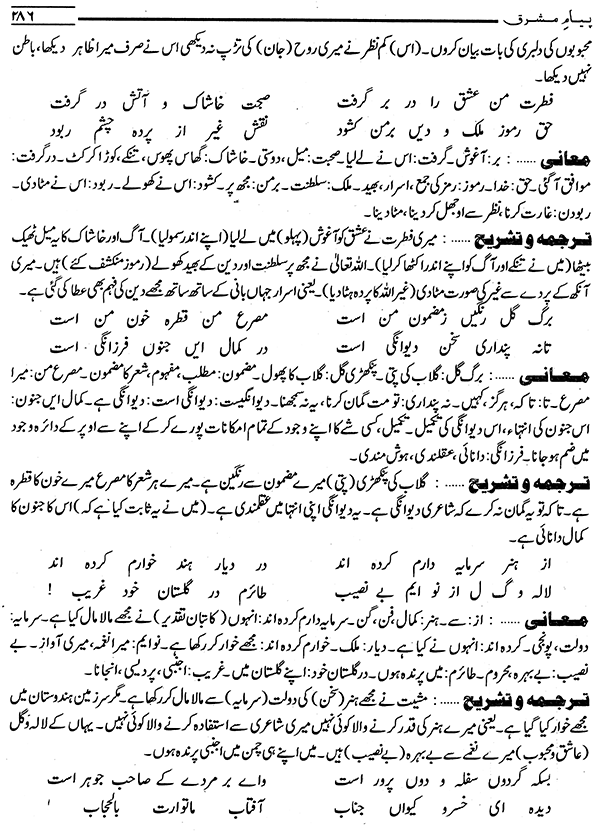 پیام مشرق ۲۸۶
محبوبوں کی دلبری کی بات بیان کروں۔ (اس) کم نظر نے میری روح (جان) کی تڑپ نہ دیکھی اس نے صرف میرا ظاہر دیکھا، باطن
نہیں دیکھا۔
فطرت من عشق را در بر گرفت صحبت خاشاک و آتش در گرفت
حق رموز ملک و دیں برمن کشود نقش غیر از پردہ چشم ربود
معانی ...... : بر: آغوش۔ گرفت: اس نے لے لیا۔ صحبت: میل، دوستی۔ خاشاک: گھاس پھوس، تنکے، کوڑا کرکٹ۔ درگرفت:
موافق آ گئی۔ حق: خدا۔ رموز: رمز کی جمع، اسرار، بھید۔ ملک: سلطنت۔ برمن: مجھ پر۔ کشود: اس نے کھولے۔ ربود: اس نے مٹا دی۔
ربودن: غارت کرنا، نظر سے اوجھل کر دینا، مٹا دینا۔
ترجمہ و تشریح ...... : میری فطرت نے عشق کو آغوش (پہلو) میں لے لیا (اپنے اندر سمو لیا)۔ آگ اور خاشاک کا یہ میل ٹھیک
بیٹھا (میں نے تنکے اور آگ کو اپنے اندر اکٹھا کر لیا)۔ اللہ تعالیٰ نے مجھ پر سلطنت اور دین کے بھید کھولے (رموز منکشف کئے) ہیں۔ میری
آنکھ کے پردے سے غیر کی صورت مٹا دی (غیر اللہ کا پردہ ہٹا دیا)۔ یعنی اسرار جہاں بانی کے ساتھ ساتھ مجھے دین کی فہم بھی عطا کی گئی ہے۔
برگ گل رنگیں زمضمون من است مصرع من قطرہ خون من است
تانہ پنداری سخن دیوانگی است در کمال ایں جنوں فرزانگی است
معانی ...... : برگ گل: گلاب کی پتی۔ پنکھڑی گل: گلاب کا پھول۔ مضمون: مطلب، مفہوم، شعر کا مضمون۔ مصرع من: میرا
مصرع۔ تا: تاکہ، ہرگز، کہیں۔ نہ پنداری: تو مت گمان کرنا، یہ نہ سمجھنا۔ دیوانگیست: دیوانگی است: دیوانگی ہے۔ کمال ایں جنوں:
اس جنون کی انتہاء، اس دیوانگی کی تکمیل۔ تکمیل، کسی شے کا اپنے وجود کے تمام امکانات پورے کر کے اپنے سے اوپر کے دائرہ وجود
میں ضم ہو جانا۔ فرزانگی: دانائی، عقلمندی، ہوش مندی۔
ترجمہ و تشریح ...... : گلاب کی پنکھڑی (پتی) میرے مضمون سے رنگین ہے۔ میرے ہر شعر کا مصرع میرے خون کا قطرہ
ہے۔ تاکہ تو یہ گمان نہ کرے کہ شاعری دیوانگی ہے۔ یہ دیوانگی اپنی انتہا میں عقلمندی ہے۔ (میں نے یہ ثابت کیا ہے کہ) اس کا جنون کا
کمال دانائی ہے۔
از ہنر سرمایہ دارم کردہ اند در دیار ہند خوارم کردہ اند
لالہ و گل از نو ایم بے نصیب طائرم در گلستان خود غریب !
معانی ...... : از: سے۔ ہنر: کمال، فن، گن۔ سرمایہ دارم کردہ اند: انہوں (کاتبان تقدیر) نے مجھے مالا مال کیا ہے۔ سرمایہ:
دولت، پونجی۔ کردہ اند: انہوں نے کیا ہے۔ دیار: ملک۔ خوارم کردہ اند: مجھے خوار کر رکھا ہے۔ نوایم: میرا نغمہ، میری آواز۔ بے
نصیب: بے بہرہ، محروم۔ طائرم: میں پرندہ ہوں۔ در گلستان خود: اپنے گلستان میں۔ غریب: اجنبی، پردیسی، انجانا۔
ترجمہ و تشریح ...... : مشیت نے مجھے ہنر (سخن) کی دولت (سرمایہ) سے مالا مال کر رکھا ہے۔ مگر سرزمین ہندوستان میں
مجھے خوار کیا گیا ہے۔ یعنی میرے ہنر کی قدر کرنے والا کوئی نہیں میری شاعری سے استفادہ کرنے والا کوئی نہیں۔ یہاں کے لالہ و گل
(عاشق و محبوب) میرے نغمے سے بے بہرہ (بے نصیب) ہیں۔ میں اپنے ہی چمن میں اجنبی پرندہ ہوں۔
بسکہ گردوں سفلہ و دوں پرور است واے بر مردے کہ صاحب جوہر است
دیدہ ای خسرو کیواں جناب آفتاب ماتوارت بالحجاب